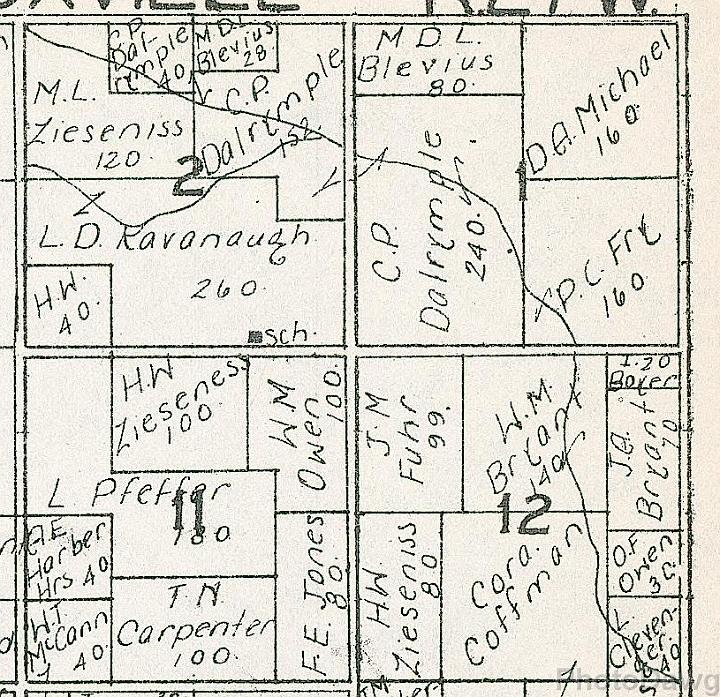 R. 27W.
C.P.
Dal-
rymple
40
M.D.L.
Blevius
28
M D L.
Blevius
80.
D.A. Michael
160.
M.L.
Zieseniss
120.
C.P.
Dalrymple
152
2
1
C.P.
Dalrymple
240.
L. D. Kavanaugh
260.
H.W.
40.
sch.
P.C. Fry
160.
H.W
Zieseness
100
W M
Owen
100.
J. M
Fuhr
99.
W.M.
Bryant
140
1.20
Boyer
J.A.
Bryant
70
L Pfeffer
11
180
12
A.E.
Harber
Hrs 40
W.T.
McCann
40.
T. N.
Carpenter
100.
F.E. Jones
80.
H.W
Zieseniss
80
Cora.
Coffman
O.F.
Owen
30.
L.
Cleven-
ger.
40